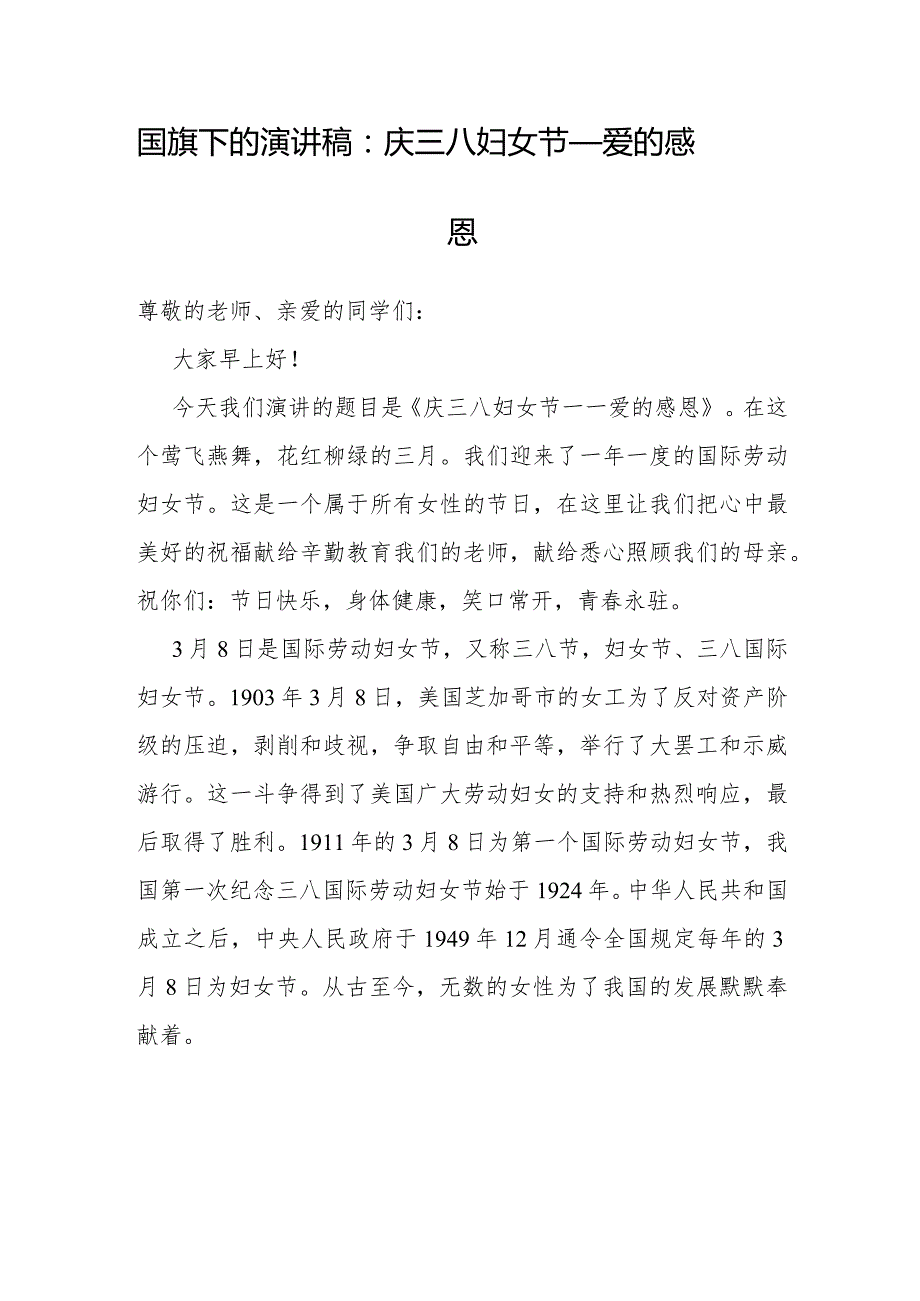 国旗下的演讲稿：庆三八妇女节—爱的感
恩
尊敬的老师、亲爱的同学们：
大家早上好！
今天我们演讲的题目是《庆三八妇女节一一爱的感恩》。在这
个莺飞燕舞，花红柳绿的三月。我们迎来了一年一度的国际劳动
妇女节。这是一个属于所有女性的节日，在这里让我们把心中最
美好的祝福献给辛勤教育我们的老师，献给悉心照顾我们的母亲。
祝你们：节日快乐，身体健康，笑口常开，青春永驻。
3月8日是国际劳动妇女节，又称三八节，妇女节、三八国际
妇女节。1903年3月8日，美国芝加哥市的女工为了反对资产阶
级的压迫，剥削和歧视，争取自由和平等，举行了大罢工和示威
游行。这一斗争得到了美国广大劳动妇女的支持和热烈响应，最
后取得了胜利。1911年的3月8日为第一个国际劳动妇女节，我
国第一次纪念三八国际劳动妇女节始于1924年。中华人民共和国
成立之后，中央人民政府于1949年12月通令全国规定每年的3
月8日为妇女节。从古至今，无数的女性为了我国的发展默默奉
献着。